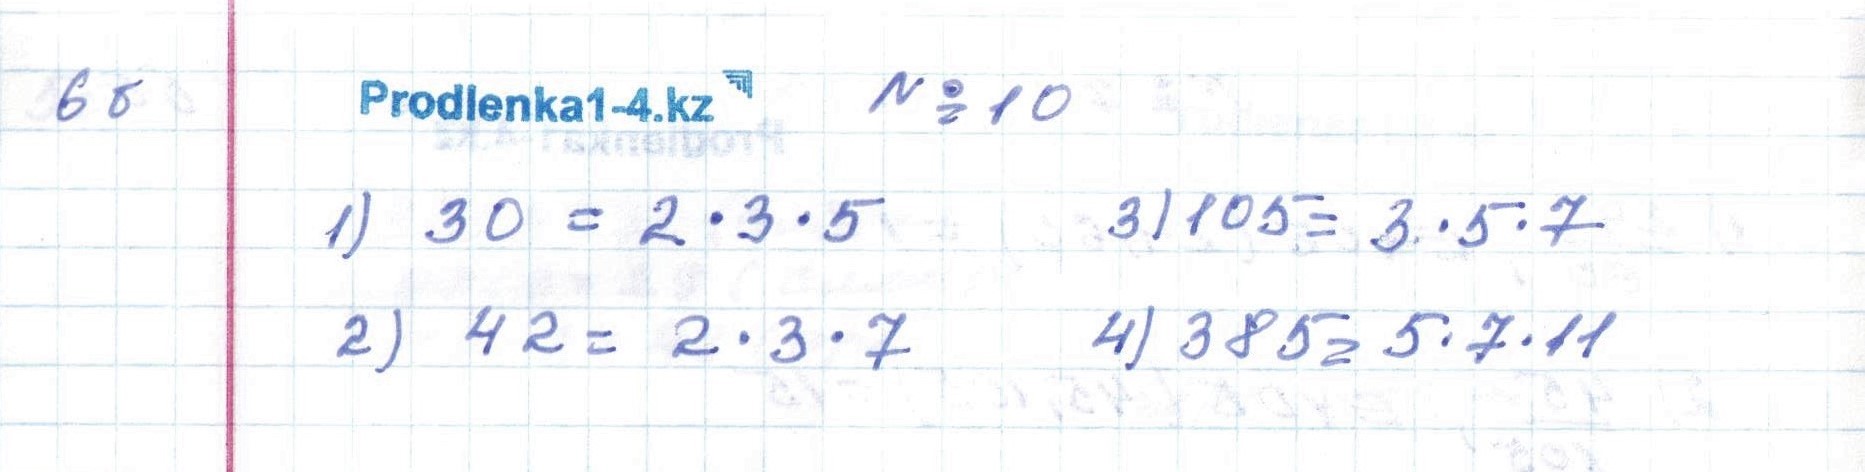 6б Prodlenka1-4.kz № 10
1) 30 = 2·3·5 3) 105 = 3·5·7
2) 42 = 2·3·7 4) 385 = 5·7·11